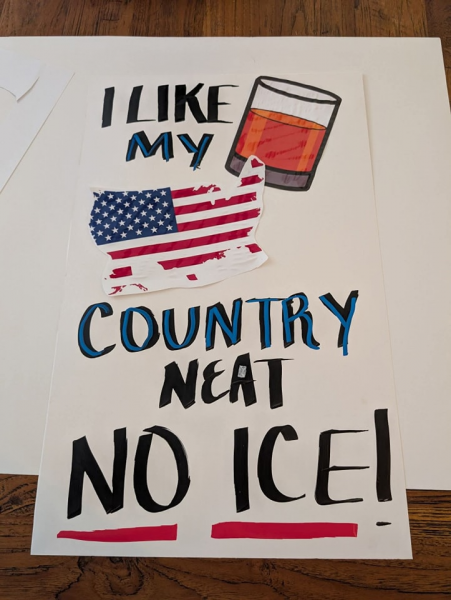 I LIKE
MY
COUNTRY
NEAT
NO ICE!